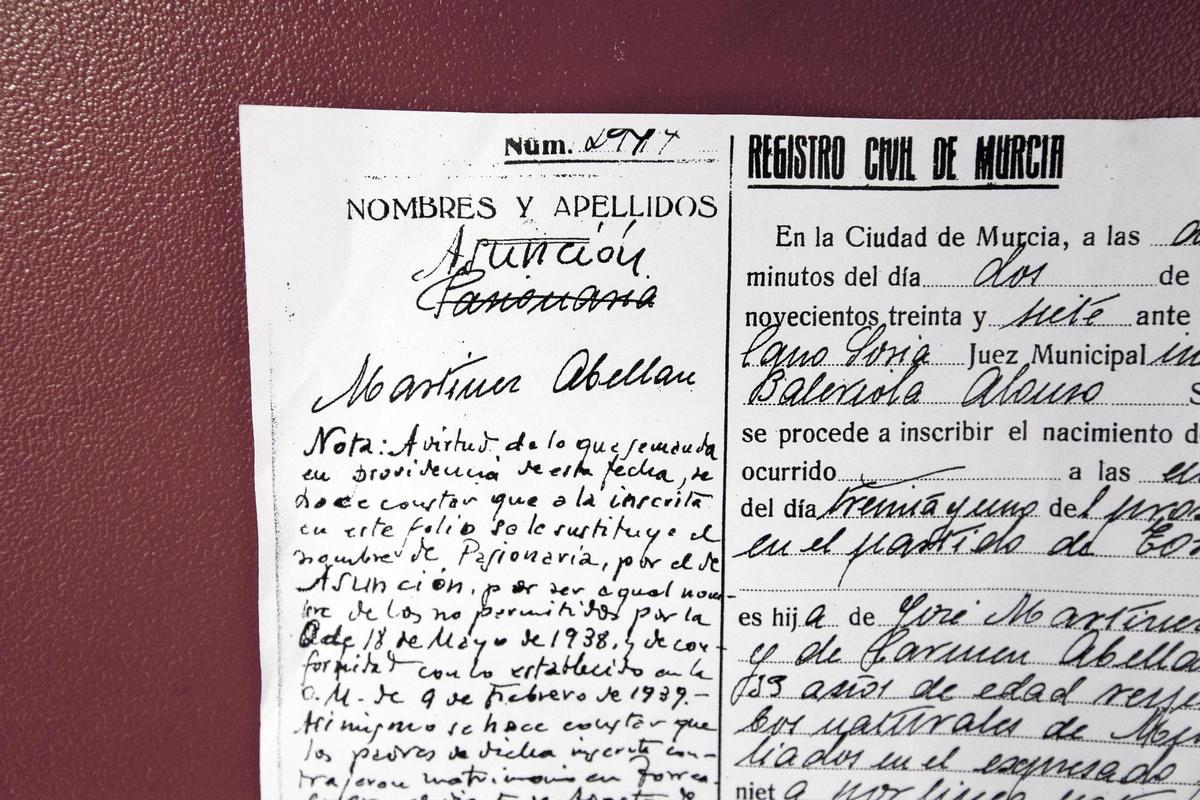 Núm.
NOMBRES Y APELLIDOS
Asunción
Pasionaria
Martínez Abellan
Nota: A virtud de lo que se manda
en providencia de esta fecha, se
hace constar que a la inscrita
en este folio se le sustituye el
nombre de Pasionaria, por el de
ASUNCIÓN, por ser aquel nom-
bre de los no permitidos por la
O. de 18 de Mayo de 1938, y de con-
formidad con lo establecido en la
O.M. de 9 de Febrero de 1939.-
Asimismo se hace constar que
los padres de dicha inscrita con-
trajeron matrimonio en Torre-
REGISTRO CIVIL DE MURCIA
En la Ciudad de Murcia, a las
minutos del día dos de
novecientos treinta y siete ante
Cano Soria Juez Municipal
Baleriola Alonso S
se procede a inscribir el nacimiento d
ocurrido a las
del día treinta y uno del
en el partido de
es hija de José Martínez
y de Carmen Abella
33 años de edad
naturales de
liados en el expresado
niet a por línea